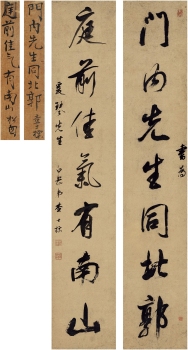 門內先生同北郭
書為
庭前佳氣有南山
先生
門內先生同北郭
庭前佳氣有南山